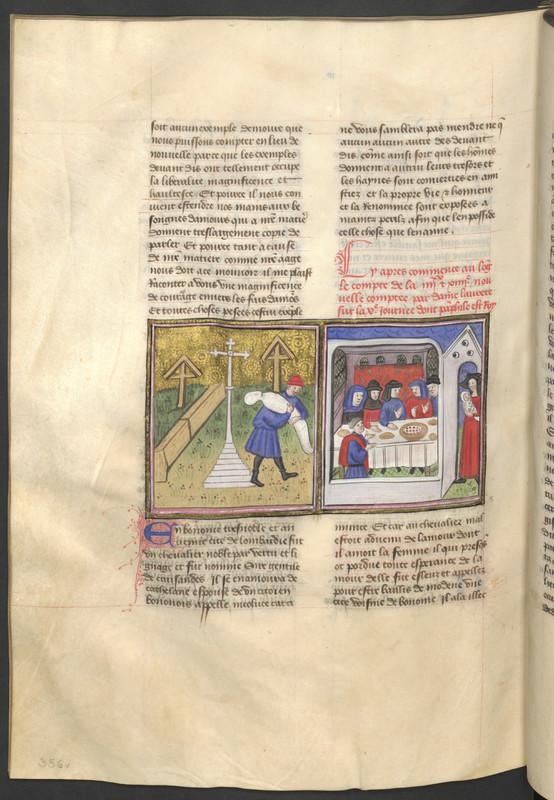 soit aucun exemple demoure que
nous puissons compter en lieu de
nouvelle parce que les exemples
devant dis ont tellement occupe
la liberalite magnificence et
haultesce. Et pource il nous con
vient estendre nos mains aux be
soignes damours qui a nr̄e matiē
donnent treslargement copie de
parler Et pource tant a cause
de nr̄e matiere comme nr̄e aage
nous doit ace mouvoir. il me plaist
Raconter a vous une magnificence
de courage envers les fais damōs
Et toutes choses pesees cestui exēple
ne vous semblera pas mendre ne q̄
aucun aucun autre des devant
dis. cōme ainsi soit que les hōmes
donnent a autrui leurs tresors et
les haynes sont converties en ami
stiez et la propre vie et honneur
et la Renommee sont exposees a
mains perilz afin que len posside
celle chose que len aime.
Cy apres commence au long
le compte de la
velle comptee par dame laurete
sur la journee dont pamphile est Roy
En bononie tresnoble et an
cienne cite de lombardie fut
un chevalier noble par vertu et li
gnage et fut nomme Sire gentile
de carisandes Il se enamoura de
cathelane espouse de un citoien
bononois appelle nicolice
minnic Et car au chevalier mal
estoit advenu de lamour dont
il amoit la femme il qui presq̄s
ot pordue toute esperance de la
mour delle fut esleu et appellez
pour estre baillis de modene une
cite voisine de bonome Il ala illec
356v